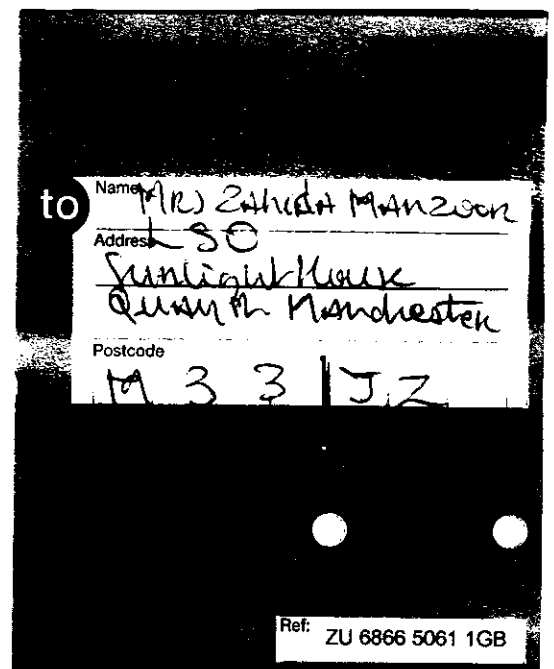 to
Name MRS ZAHIDA MANZOOR
Address LSO
Sunlight House
QUAY St MANchesteR
Postcode
M 3 3 JZ
Ref: ZU 6866 5061 1GB